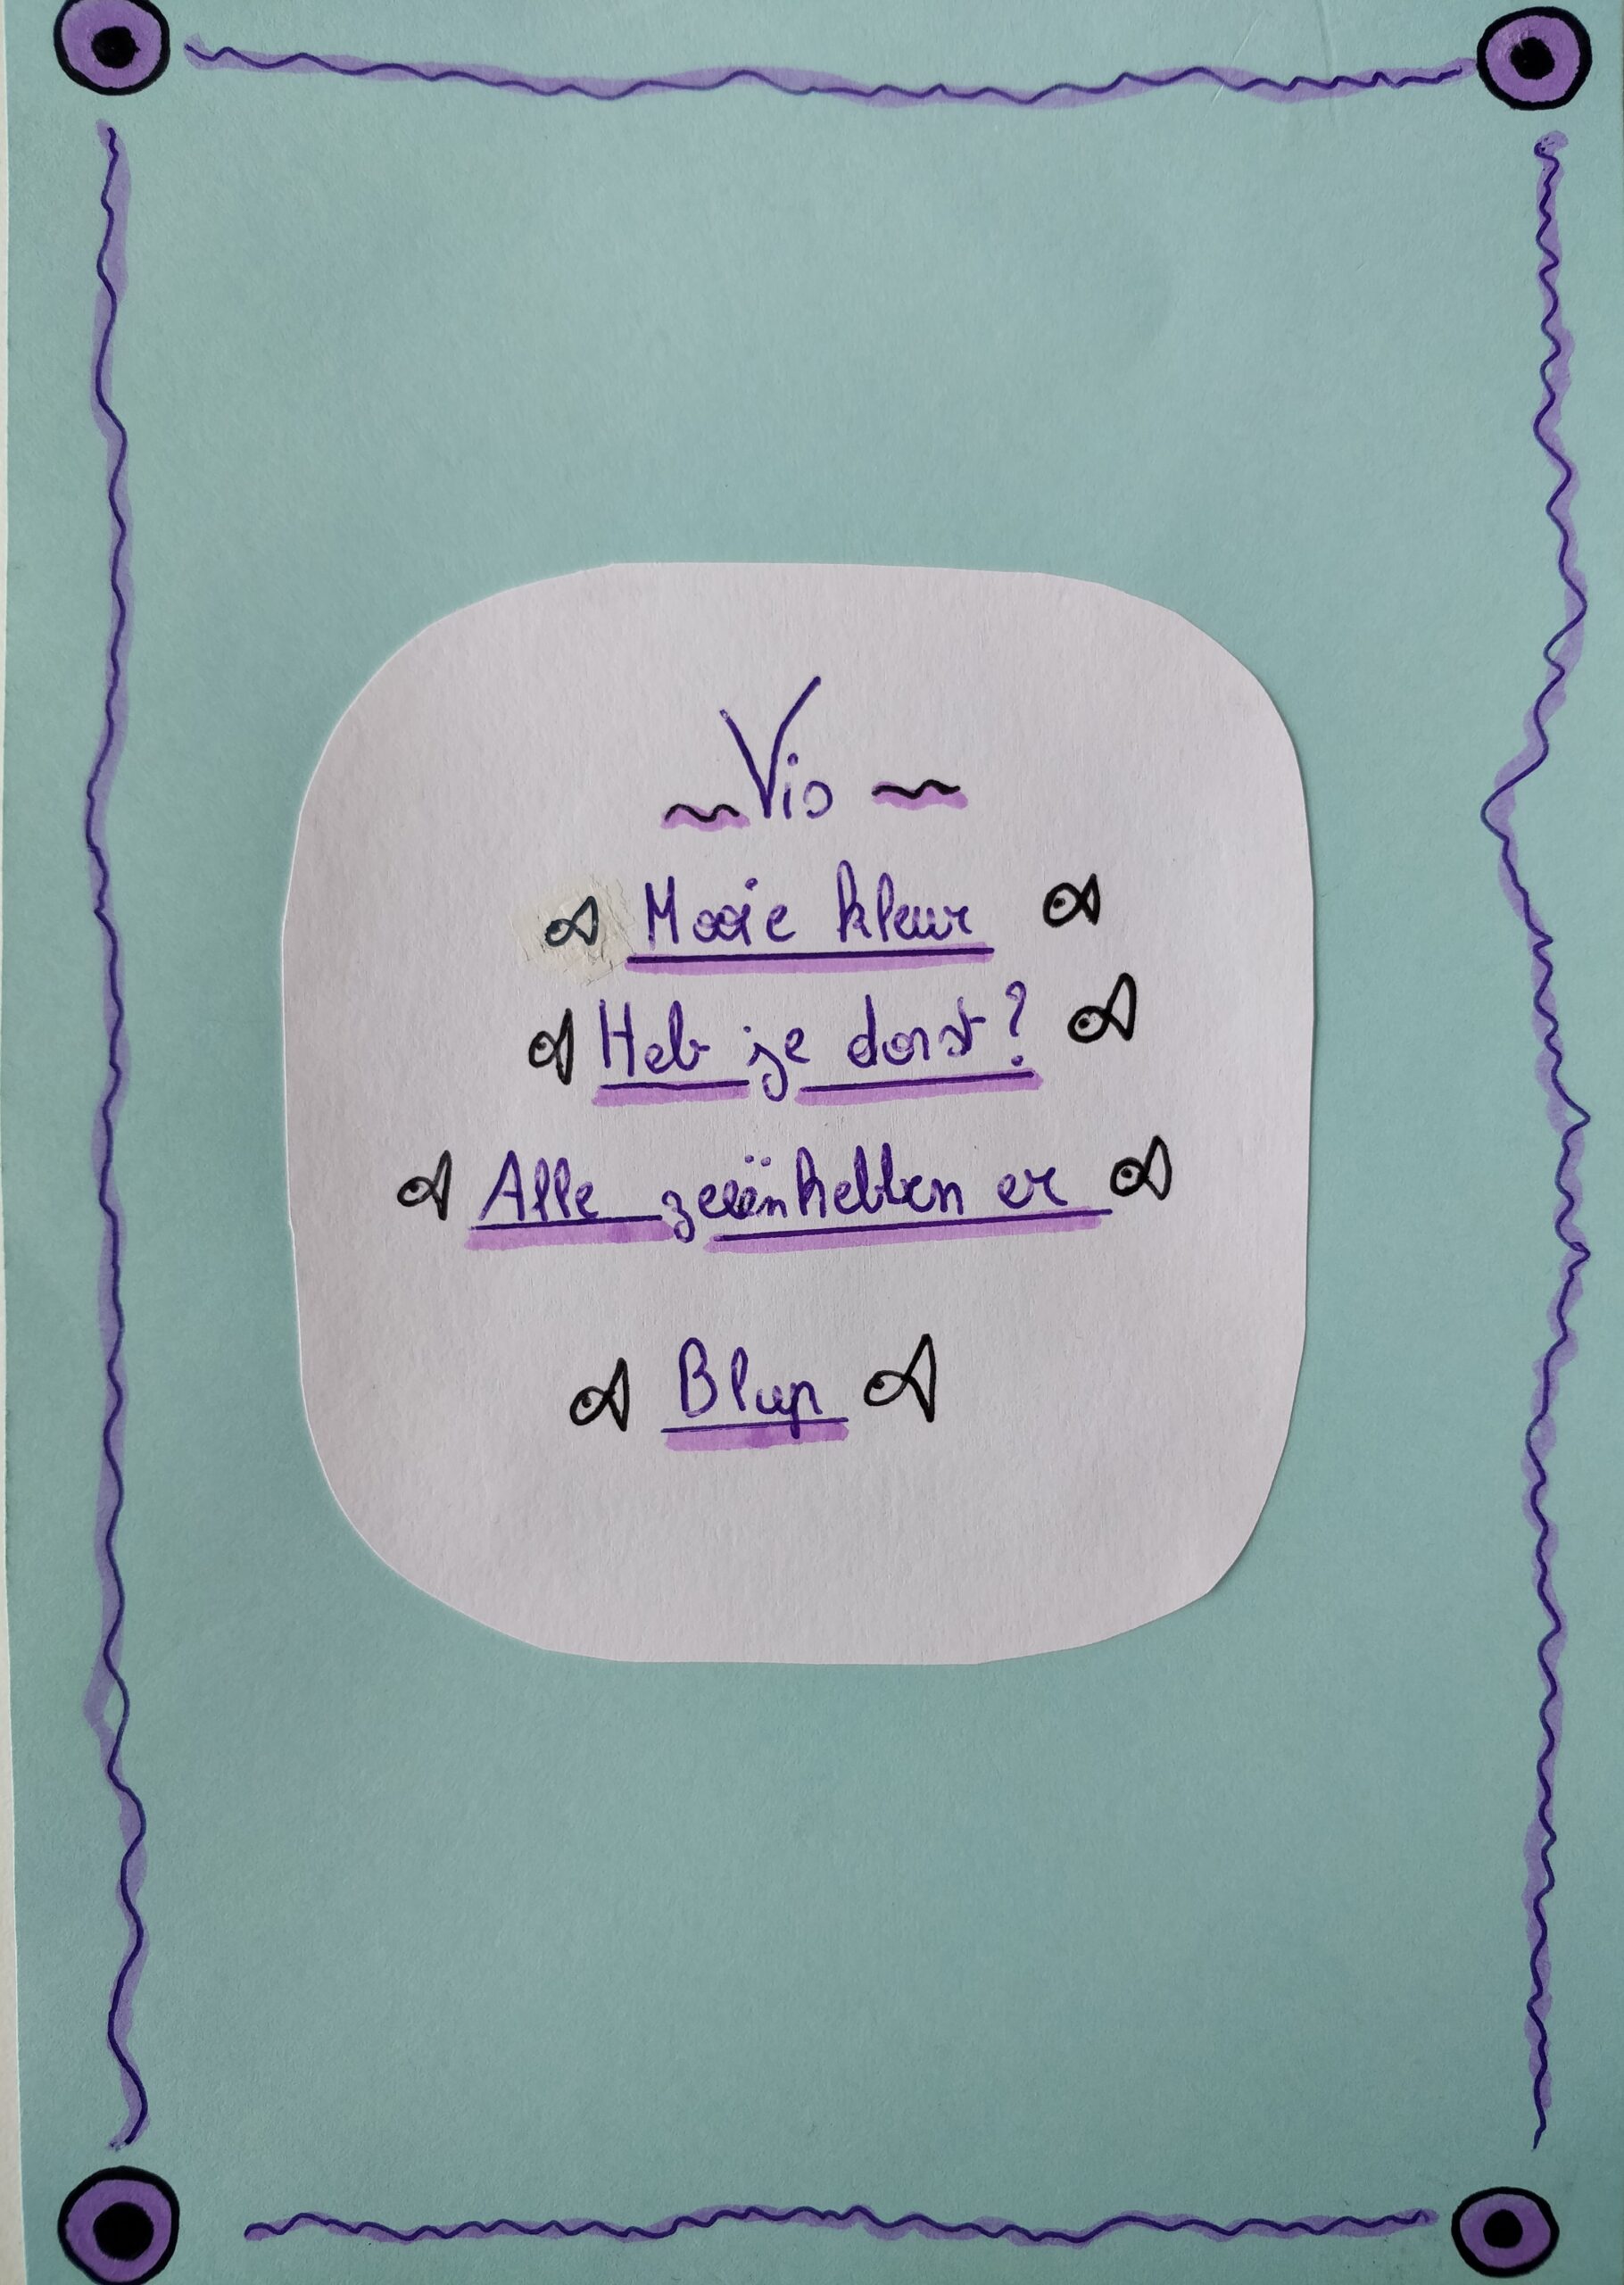 Vis
Mooie kleur
Heb je dorst?
Alle zeeën hebben er
Blup